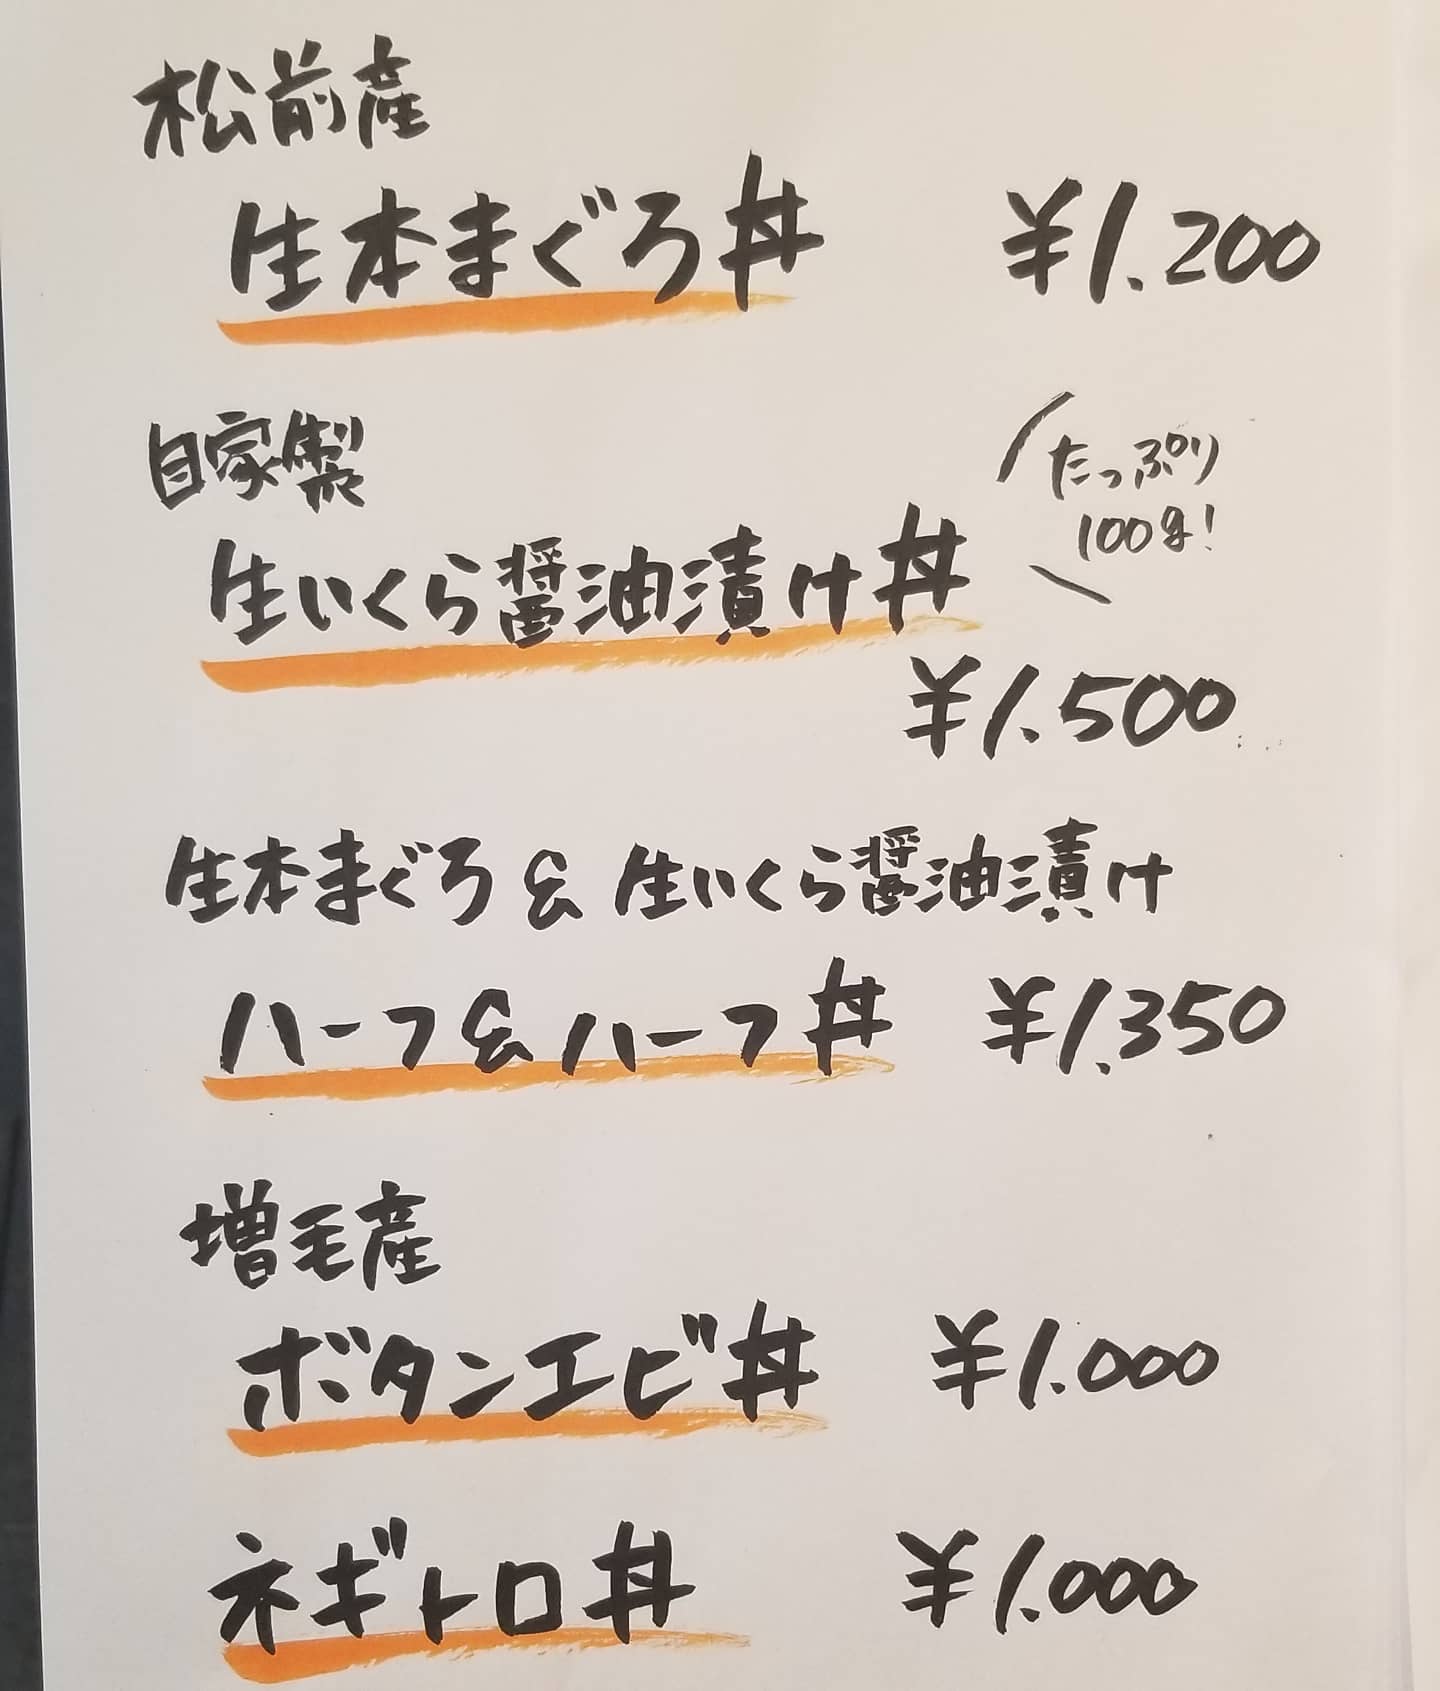 松前産
生本まぐろ丼 ¥1.200
自家製
たっぷり
100g!
生いくら醤油漬け丼
¥1.500
生本まぐろ & 生いくら醤油漬け
ハーフ&ハーフ丼 ¥1.350
増毛産
ボタンエビ丼 ¥1.000
ネギトロ丼 ¥1.000